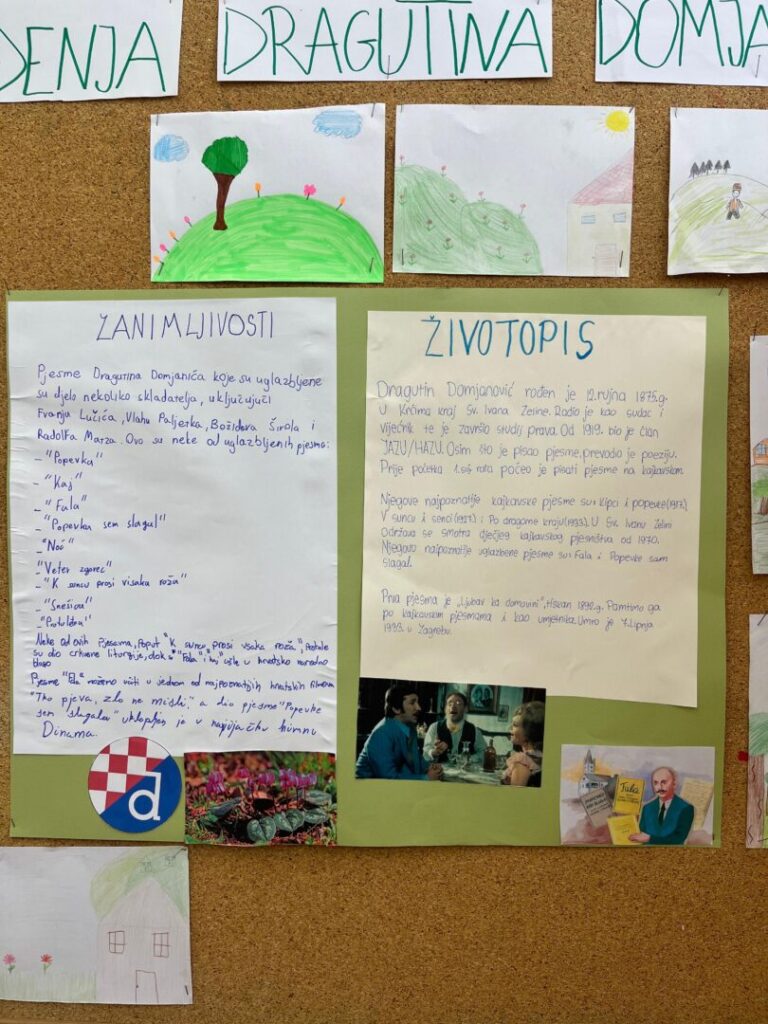 DENJA
DRAGUTINA
DOMJA
ZANIMLJIVOSTI
Pjesme Dragutina Domjanića koje su uglazbljene
su djelo nekoliko skladatelja, uključujući
Franja Lučića, Vlahu Paljetka, Božidara Širola i
Radolfa Matza. Ovo su neke od uglazbljenih pjesma:
- "Popevka"
- "Kaj"
- "Fala"
- "Popevka sem slagal"
- "Noć"
- "Veter zgoreč"
- "K suncu prosi vsaka roža"
Neke od ovih pjesama, poput "K suncu prosi vsaka roža", postale
su dio crkvene liturgije, dok "Fala" i "Kaj" ušle u hrvatsko narodno
blago
Pjesmu "Fala" možemo vidti u jednom od najpoznatijih hrvatskih filmova
"Tko pjeva, zlo ne misli", a dio pjesme "Popevke
sem slagal" uklopljen je u navijačku himnu
Dinama.
d
ŽIVOTOPIS
Dragutin Domjanović rođen je 12. rujna 1875.g.
U Krčima kraj Sv. Ivana Zeline. Radio je kao sudac i
vijećnik te je završio studij prava. Od 1919. bio je član
JAZU/HAZU. Osim što je pisao pjesme, prevodio je poeziju.
Prije početka 1. svj rata počeo je pisati pjesme na kajkavskom
Njegove najpoznatije kajkavske pjesme su: Kipci i popevke(1917.)
V suncu i senci(1927.) i Po dragome kraju(1933.). U Sv. Ivanu Zelini
Održava se smotra dječjeg kajkavskog pjesništva od 1970.
Njegove najpoznatije uglazbene pjesme su: Fala i Popevke sam
slagal.
Prva pjesma je "Ljubav ka domovini", tiskan 1892.g. Pamtimo ga
po kajkavskim pjesmama i kao umjetnika. Umro je 7. Lipnja
1933. u Zagrebu.
Fala